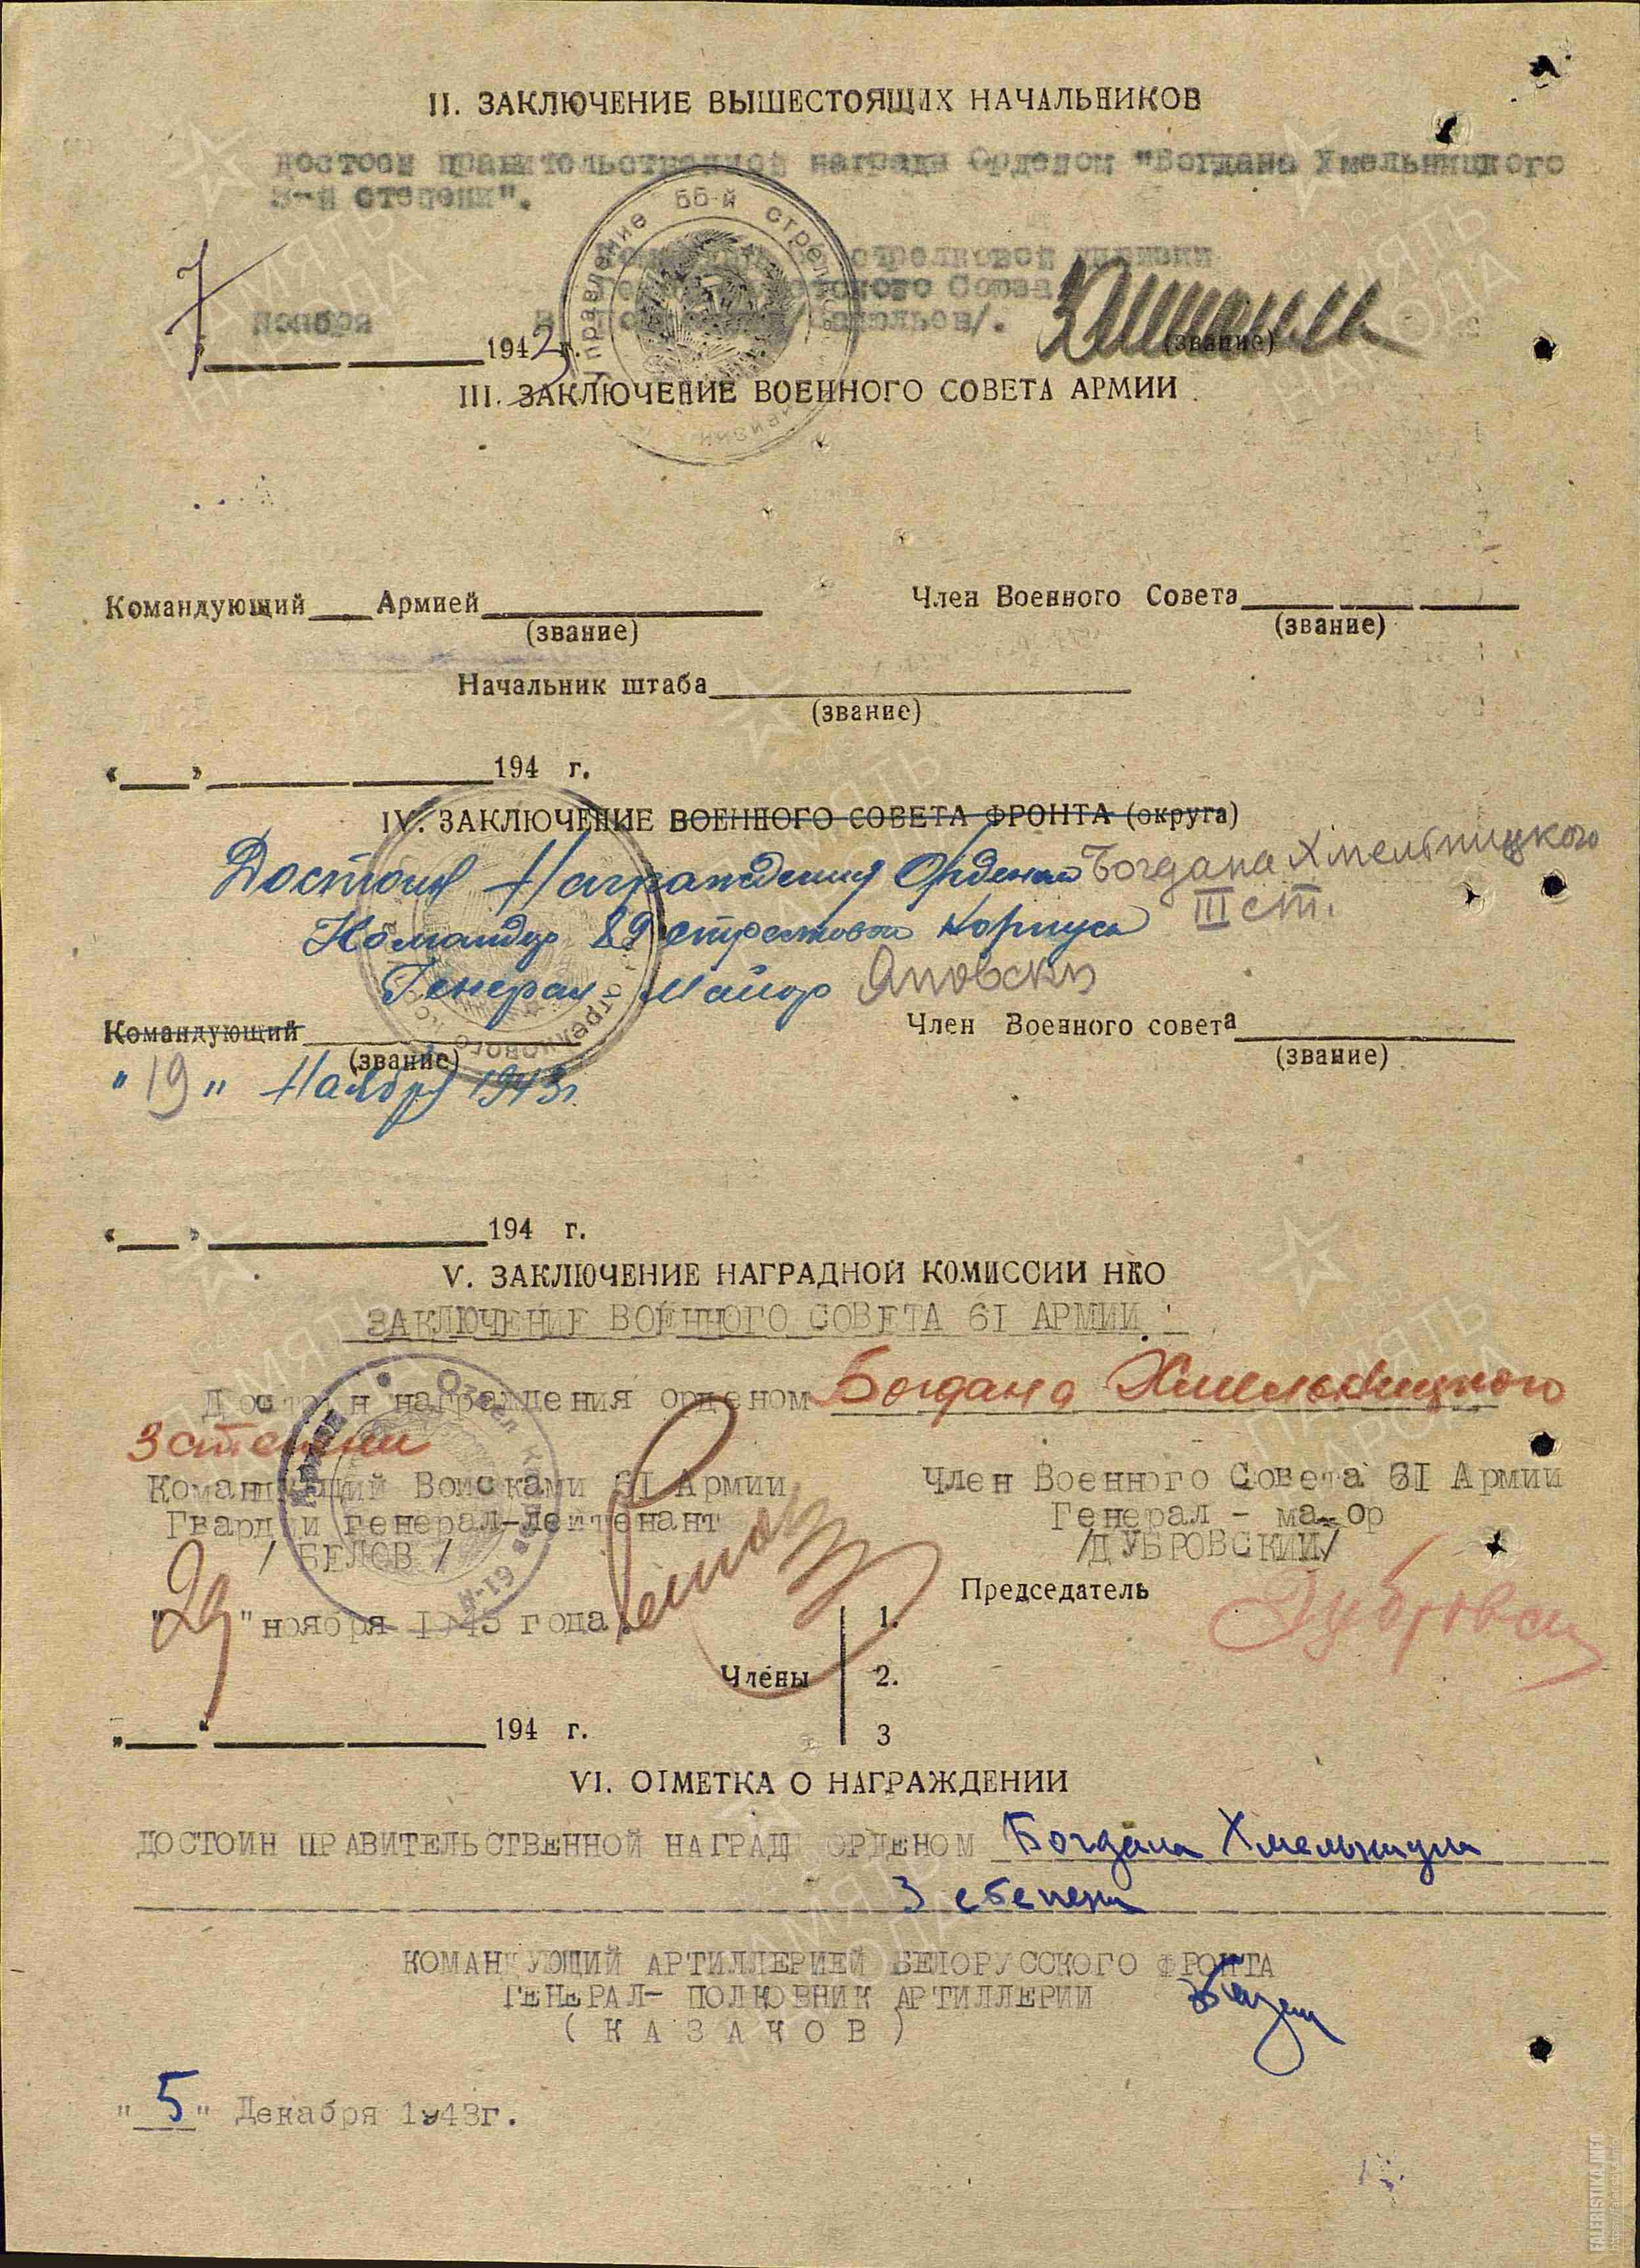 II. ЗАКЛЮЧЕНИЕ ВЫШЕСТОЯЩИХ НАЧАЛЬНИКОВ
достоен правительственной награды Орденом "Богдана Хмельницкого
3-й степени".
стрелковой дивизии
Союза
7 ноября 1943 г.
(звание)
Управление 55-й стрел
III. ЗАКЛЮЧЕНИЕ ВОЕННОГО СОВЕТА АРМИИ
Командующий Армией
Член Военного Совета
(звание)
(звание)
Начальник штаба
(звание)
« » 194 г.
IV. ЗАКЛЮЧЕНИЕ ВОЕННОГО СОВЕТА ФРОНТА (округа)
Достоин Награждения Орденом Богдана Хмельницкого
III ст.
Командир 89 стрелкового Корпуса
Генерал Майор Яновски
Командующий
Член Военного совета
(звание)
(звание)
"19" Ноября 1943г.
« » 194 г.
V. ЗАКЛЮЧЕНИЕ НАГРАДНОЙ КОМИССИИ НКО
ЗАКЛЮЧЕНИЕ ВОЕННОГО СОВЕТА 61 АРМИИ:
Достоин награждения орденом Богдана Хмельницкого
3 степени
Командующий Войсками 61 Армии
Член Военного Совета 61 Армии
Гвардии генерал-лейтенант
Генерал - майор
/ БЕЛОВ /
/ДУБРОВСКИЙ/
Председатель
"29" ноября 1943 года
1.
Члены 2.
3
" " 194 г.
VI. ОТМЕТКА О НАГРАЖДЕНИИ
ДОСТОИН ПРАВИТЕЛЬСТВЕННОЙ НАГРАДЫ ОРДЕНОМ Богдана Хмельницк
3 степени
КОМАНДУЮЩИЙ АРТИЛЛЕРИЕЙ БЕЛОРУССКОГО ФРОНТА
ГЕНЕРАЛ-ПОЛКОВНИК АРТИЛЛЕРИИ
( К А З А К О В )
"5" Декабря 1943г.
ПАМЯТЬ НАРОДА
FALERISTIKA.INFO